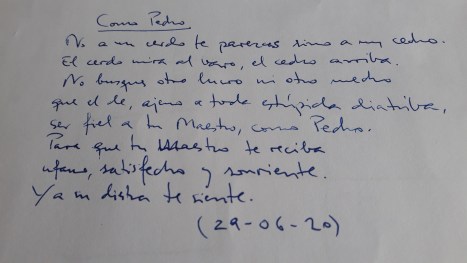 Como Pedro
No a un cerdo te parezcas sino a un cedro.
El cerdo mira al vaso, el cedro arriba.
No busques otro lucro ni otro medro
que el de, ajeno a toda estúpida diatriba,
ser fiel a tu Maestro, como Pedro.
Para que tu Maestro te reciba
ufano, satisfecho y sonriente.
Y a su diestra te siente.
(29-06-20)